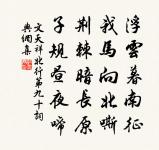 浮雲暮南征
我馬向北嘶
荊棘暗長原
子規晝夜啼
文天祥北行第九十詞
典網集